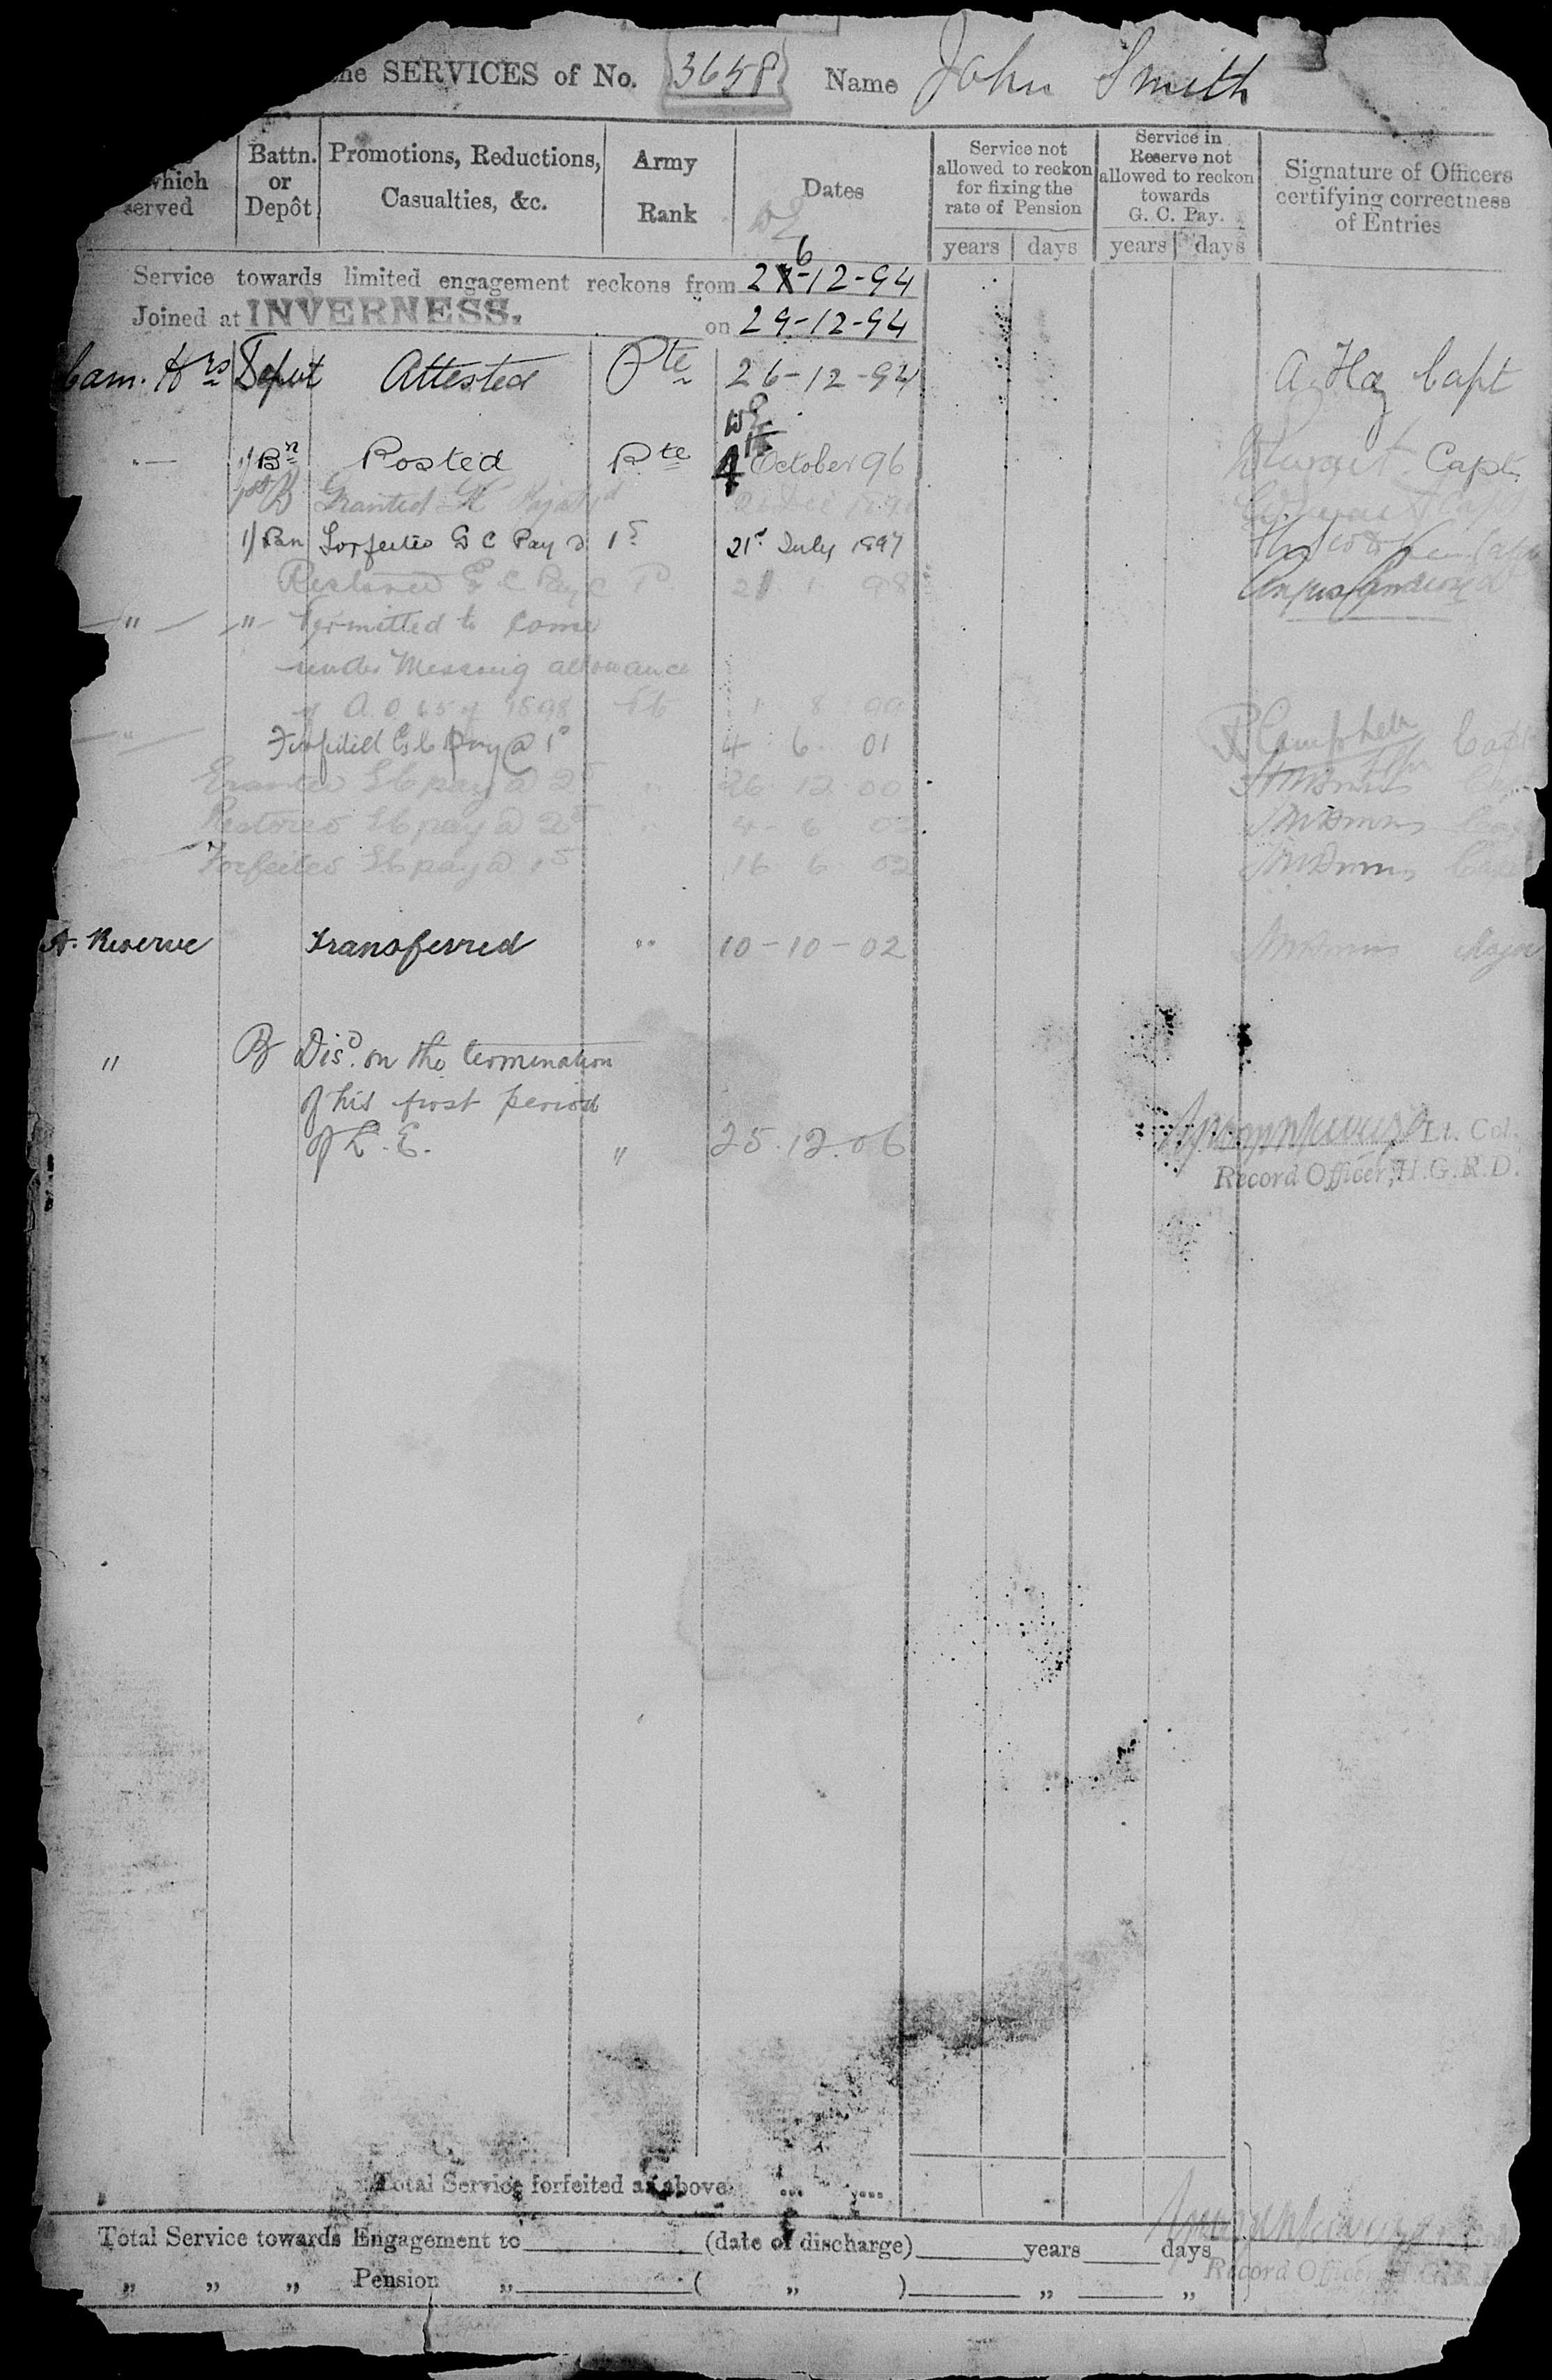 the SERVICES of No. 3658 Name John Smith
which served
Battn. or Depôt
Promotions, Reductions, Casualties, &c.
Army Rank
Dates
Service not allowed to reckon for fixing the rate of Pension
years days
Service in Reserve not allowed to reckon towards G. C. Pay.
years days
Signature of Officers certifying correctness of Entries
Service towards limited engagement reckons from 26-12-94
Joined at INVERNESS. on 29-12-94
Cam. Hrs Depot Attested Pte 26-12-94 Capt
1/Bn Posted Pte 4th October 96 Stewart Capt
1st B Granted 26 Dec 1896 Capt
1/Ban Forfeited G C Pay @ 1d 21st July 1897
Restored G C Pay 21 1 98
" " Permitted to come
under Messing allowance
of A.O 65 of 1898 1 8 99
" Forfeited G.C. Pay @ 1d 4 6 01 Campbell Capt
Granted G.C. pay @ 2d " 26 12 00 Capt
Restored G.C. pay @ 2d " 4-6 02 Capt
Forfeited G.C. pay @ 1d 16 6 02 Capt
A. Reserve Transferred " 10-10-02 Major
" B Disd. on the termination
of his first period
of L.E. " 25.12.06 Lt. Col.
Record Officer, H.G.R.D.
Total Service forfeited as above ... ...
Total Service towards Engagement to (date of discharge) years days
„ „ „ Pension „ ( „ ) „ „
Record Officer